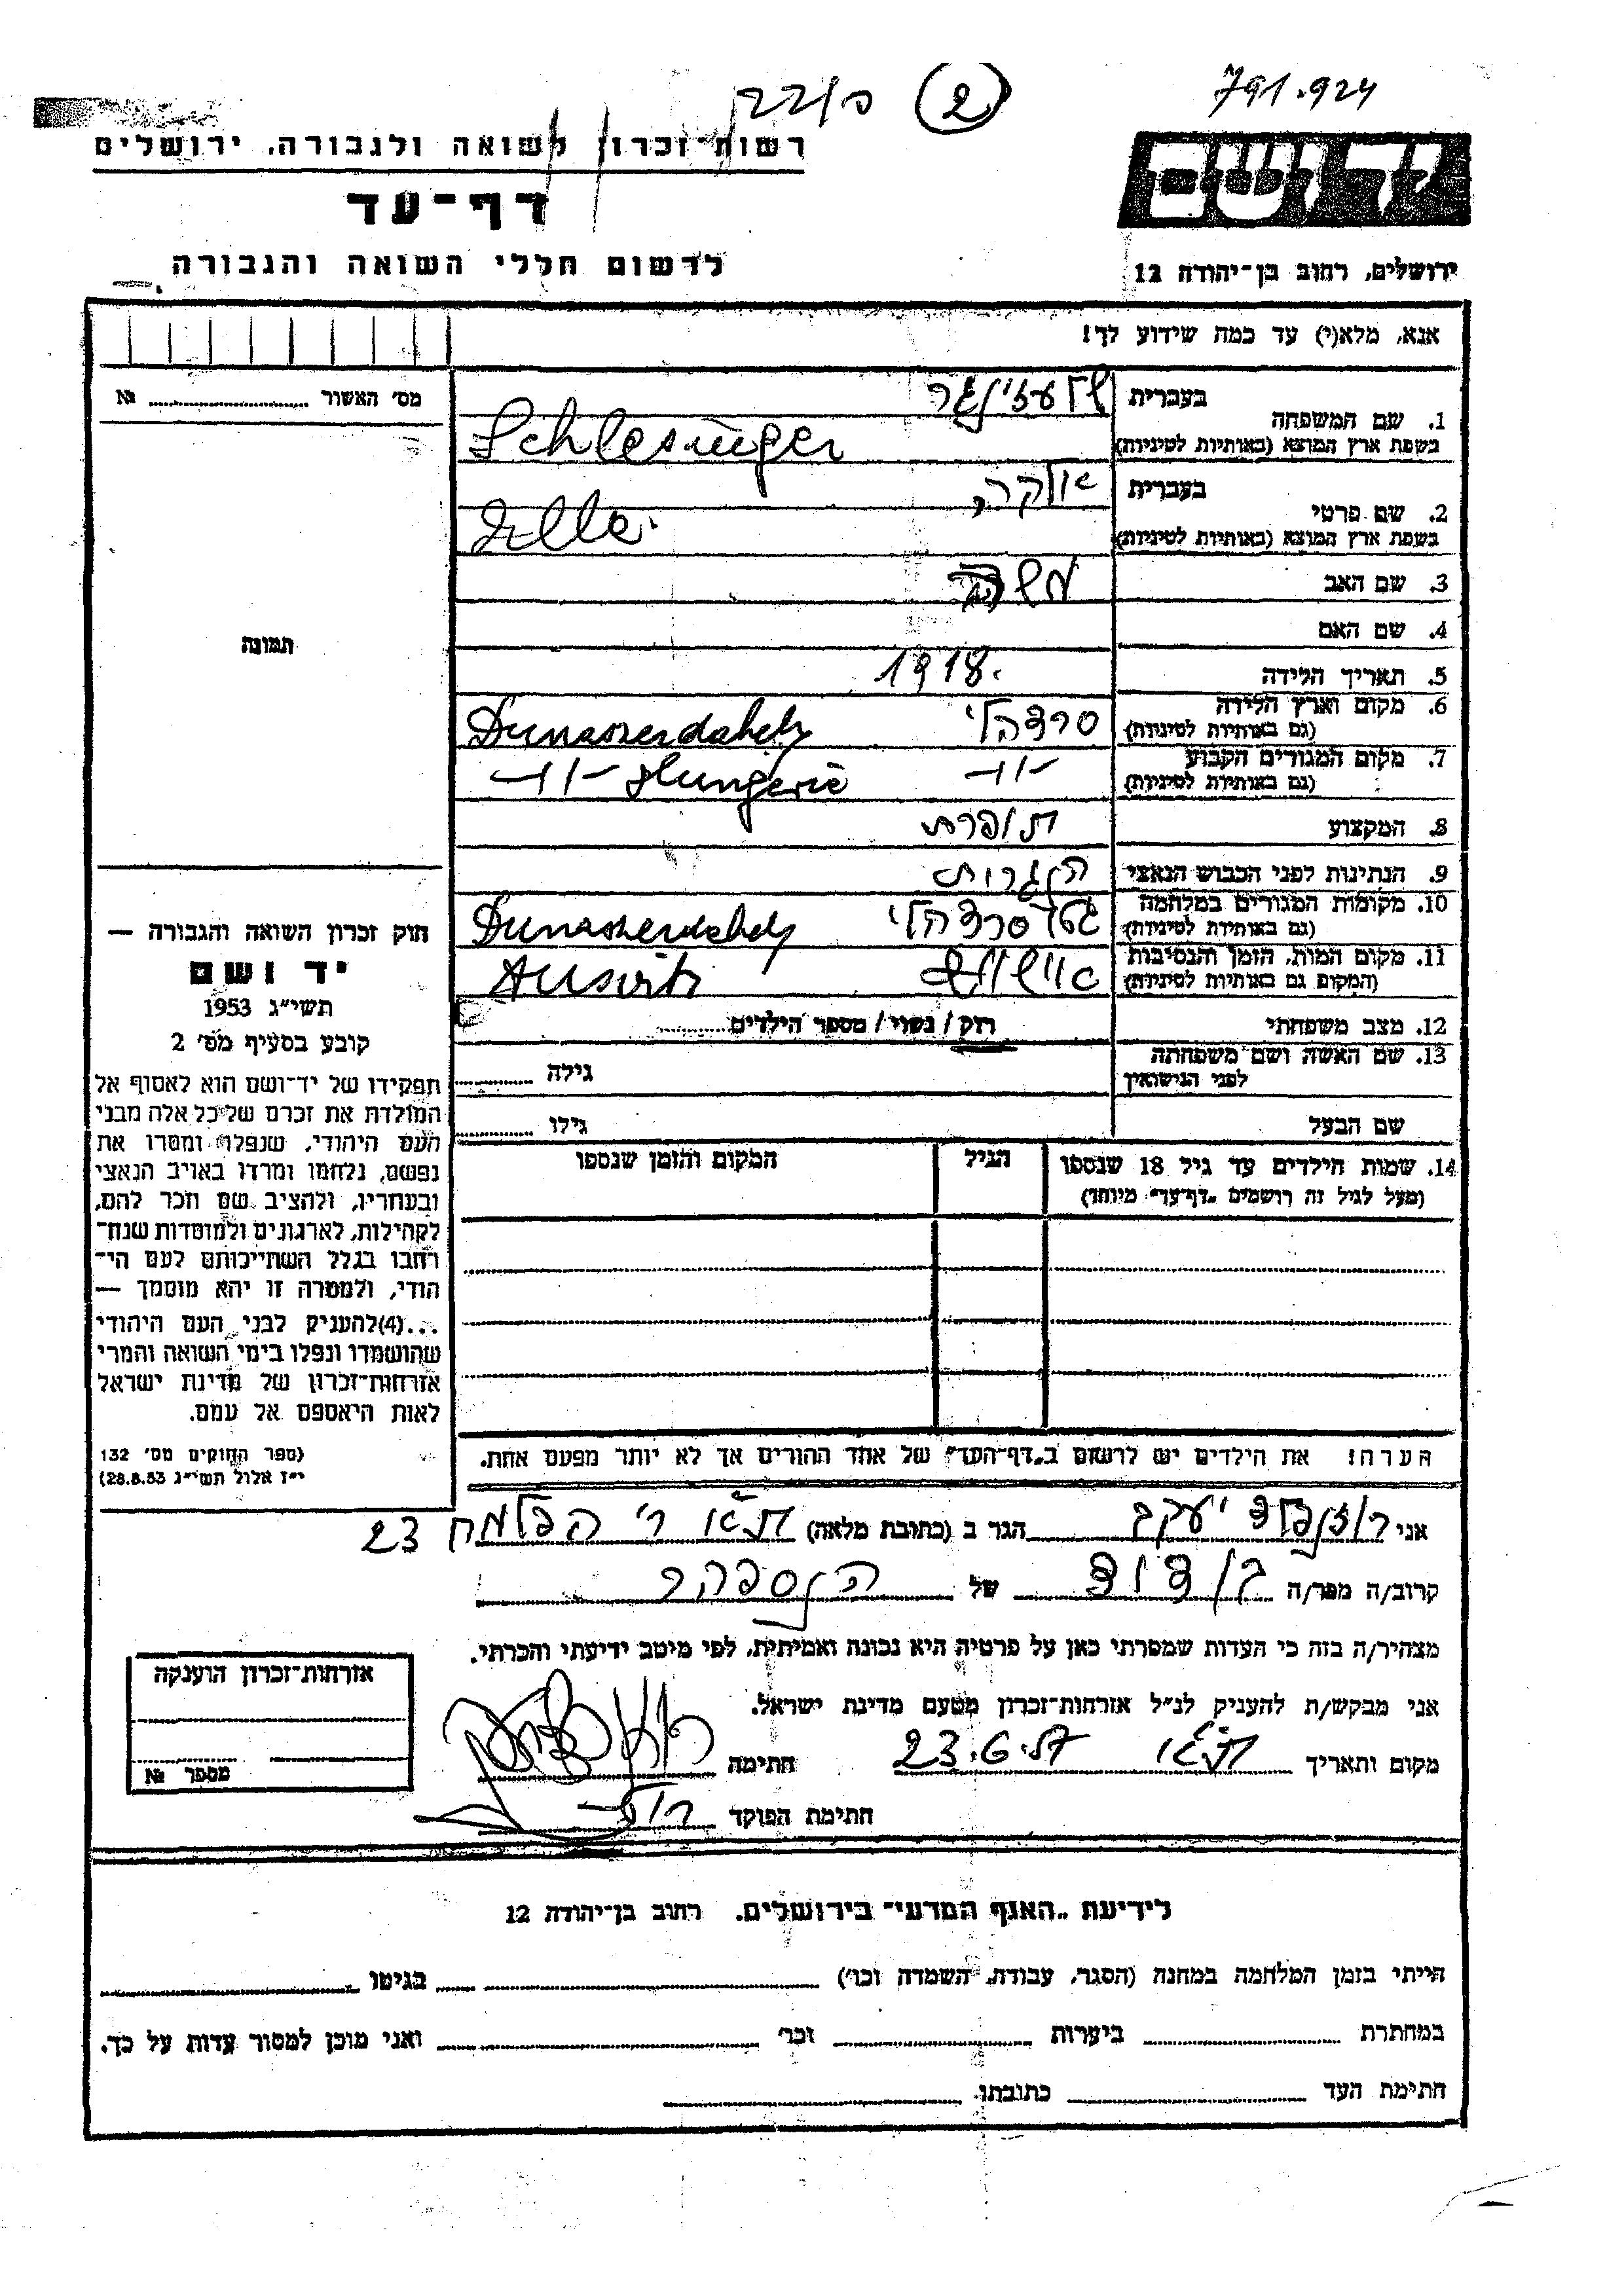 791.924
2
יד ושם
רשות־זכרון לשואה ולגבורה, ירושלים
דף־עד
לרשום חללי השואה והגבורה
ירושלים, רחוב בן־יהודה 12
אנא, מלא(י) עד כמה שידוע לך!
מס' האשור № 
1. שם המשפחה בעברית שלעזינגר
בשפת ארץ המוצא (באותיות לטיניות) Schlesinger
2. שם פרטי בעברית
בשפת ארץ המוצא (באותיות לטיניות) Ella
3. שם האב משה
4. שם האם
תמונה
5. תאריך הלידה 1918.
6. מקום וארץ הלידה סרדהלי Dunaszerdahely
(גם באותיות לטיניות)
7. מקום המגורים הקבוע -״- -״- Hungerie
(גם באותיות לטיניות)
8. המקצוע תופרת
9. הנתינות לפני הכבוש הנאצי הנגרית
10. מקומות המגורים במלחמה גטו סרדהלי Dunaszerdahely
(גם באותיות לטיניות)
11. מקום המות, הזמן והנסיבות אוישוויץ Auswitz
(המקום גם באותיות לטיניות)
12. מצב משפחתי רוק / נשוי / מספר הילדים
13. שם האשה ושם משפחתה לפני הנישואין גילה
שם הבעל גילו
14. שמות הילדים עד גיל 18 שנספו הגיל המקום והזמן שנספו
(מעל לגיל זה רושמים „דף־עד״ מיוחד)
חוק זכרון השואה והגבורה —
יד ושם
תשי״ג 1953
קובע בסעיף מס' 2
תפקידו של יד־ושם הוא לאסוף אל
המולדת את זכרם של כל אלה מבני
העם היהודי, שנפלו ומסרו את
נפשם, נלחמו ומרדו באויב הנאצי
ובעוזריו, ולהציב שם וזכר להם,
לקהילות, לארגונים ולמוסדות שנח־
רחבו בגלל השתייכותם לעם הי־
הודי, ולמטרה זו יהא מוסמך —
...(4)להעניק לבני העם היהודי
שהושמדו ונפלו בימי השואה והמרי
אזרחות־זכרון של מדינת ישראל
לאות היאספם אל עמם.
(ספר החוקים מס' 132
י״ז אלול תשי״ג 28.8.53)
הערה! את הילדים יש לרשום ב„דף־העד״ של אחד ההורים אך לא יותר מפעם אחת.
אני רוזנפלד יעקב הגר ב (כתובת מלאה) ת״א ר' הפלמח 23
קרוב/ה מפר/ה בן דוד של הנספה
מצהיר/ה בזה כי העדות שמסרתי כאן על פרטיה היא נכונה ואמיתית, לפי מיטב ידיעתי והכרתי.
אני מבקש/ת להעניק לנ״ל אזרחות־זכרון מטעם מדינת ישראל.
מקום ותאריך ת״א חתימה
חתימת הפוקד
אזרחות־זכרון הוענקה
מספר №
לידיעת „האגף המדעי״ בירושלים, רחוב בן־יהודה 12
הייתי בזמן המלחמה במחנה (הסגר, עבודה, השמדה וכו') בגיטו
במחתרת ביערות וכו' ואני מוכן למסור עדות על כך.
חתימת העד כתובתו